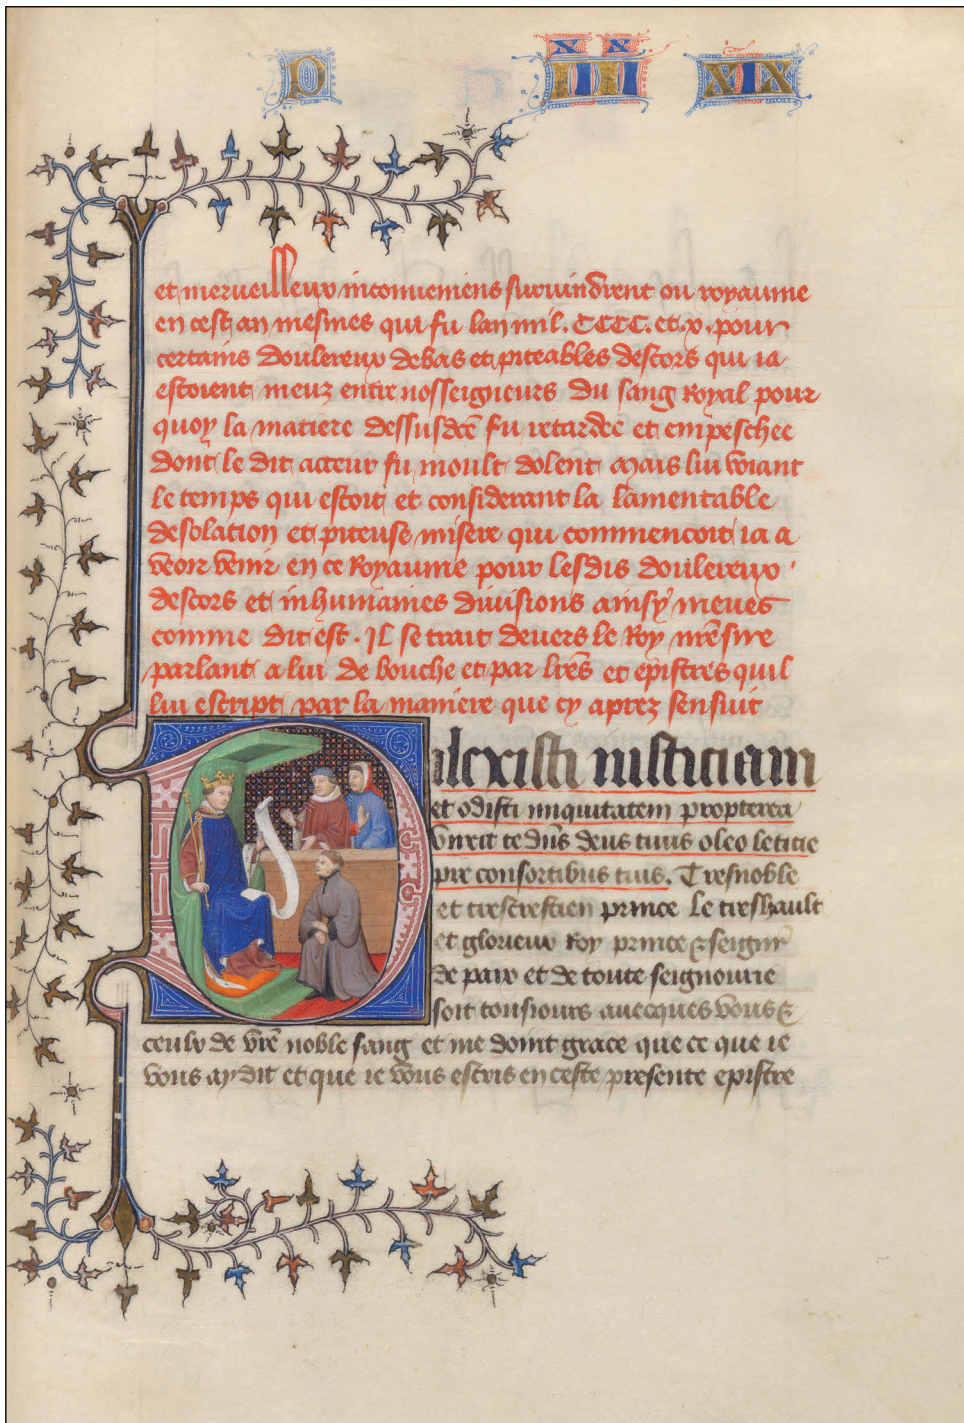 P XX III XIX
et merveilleux inconveniens survindrent ou royaume
en cest an mesmes qui fu lan mil. CCCC. et .x. pour
certains doulereux debas et piteables descors qui ia
estoient meuz entre nosseigneurs du sang Royal pour
quoy la matiere dessusdcẽ fu retardee et empeschee
dont le dit acteur fu moult dolent Mais lui voiant
le temps qui estoit et considerant la lamentable
desolation et piteuse misere qui commencoit ia a
veoir venir en ce Royaume pour lesdis doulereux
descors et inhumaines divisions ainsy meues
comme dit est. Il se trait devers le Roy nrẽ sire
parlant a lui de bouche et par lrẽs et epistres quil
lui escript par la maniere que cy aprez sensuit
Dilexisti iusticiam
et odisti iniquitatem propterea
unxit te dñs deus tuus oleo leticie
pre consortibus tuis. Tresnoble
et trescrestien prince le treshault
et glorieux Roy prince & seignr
de paix et de toute seignourie
soit tousiours avecques vous &
ceulx de vrẽ noble sang et me doint grace que ce que ie
vous ay dit et que ie vous escris en ceste presente epistre